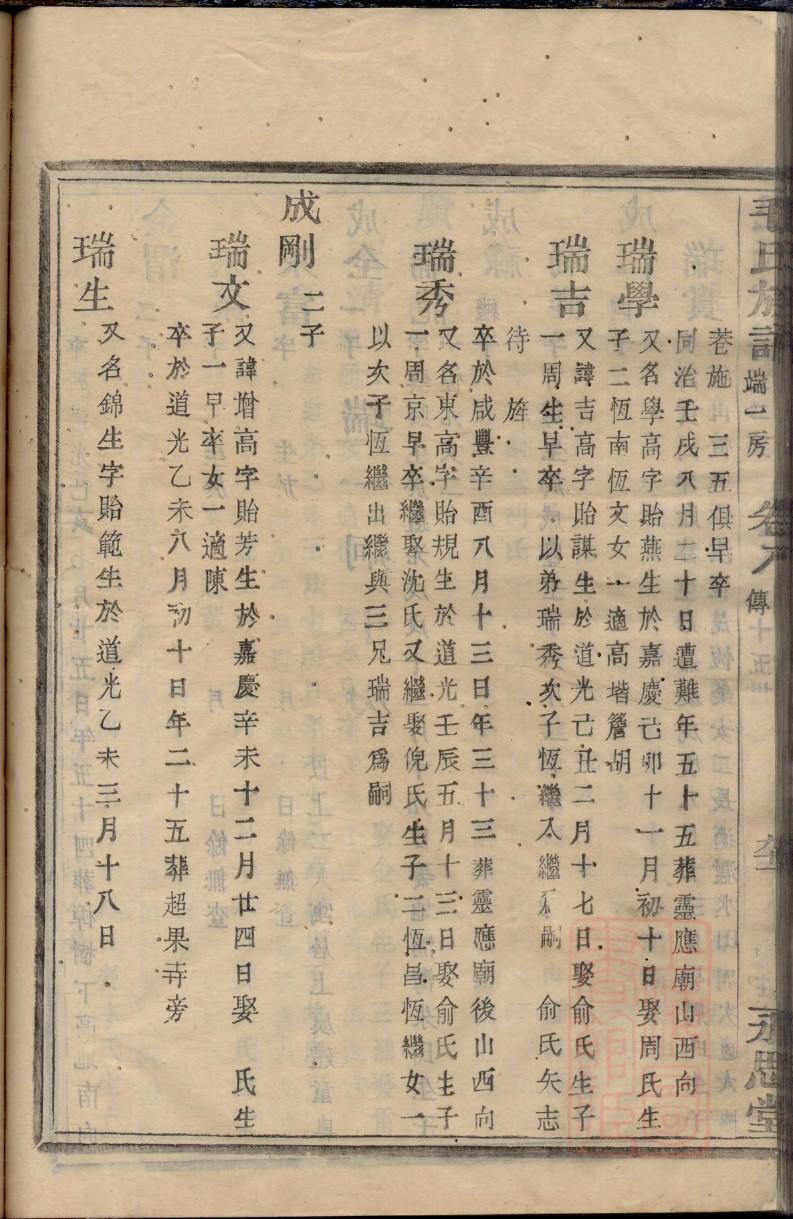 毛氏族譜 端一房 卷八 傳 永思堂
巷施 三五俱早卒
同治壬戌八月二十日遭難年五十五葬靈應廟山西向
瑞學 又名學高字貽燕生於嘉慶己卯十一月初十日娶周氏生
子二恆南恆文女一適高堦詹胡
瑞吉 又諱吉高字貽謀生於道光己丑二月十七日娶俞氏生子
一周生早卒 以弟瑞秀次子恆繼入繼為嗣 俞氏矢志
待旌
卒於咸豐辛酉八月十三日年三十三葬靈應廟後山西向
瑞秀 又名東高字貽規生於道光壬辰五月十三日娶俞氏生子
一周京早卒繼娶沈氏又繼娶倪氏生子二恆昌恆繼女一
以次子恆繼出繼與三兄瑞吉爲嗣
成剛 二子
瑞文 又諱增高字貽芳生於嘉慶辛未十二月廿四日娶 氏生
子一早卒女一適陳
卒於道光乙未八月初十日年二十五葬超果寺旁
瑞生 又名錦生字貽範生於道光乙未三月十八日